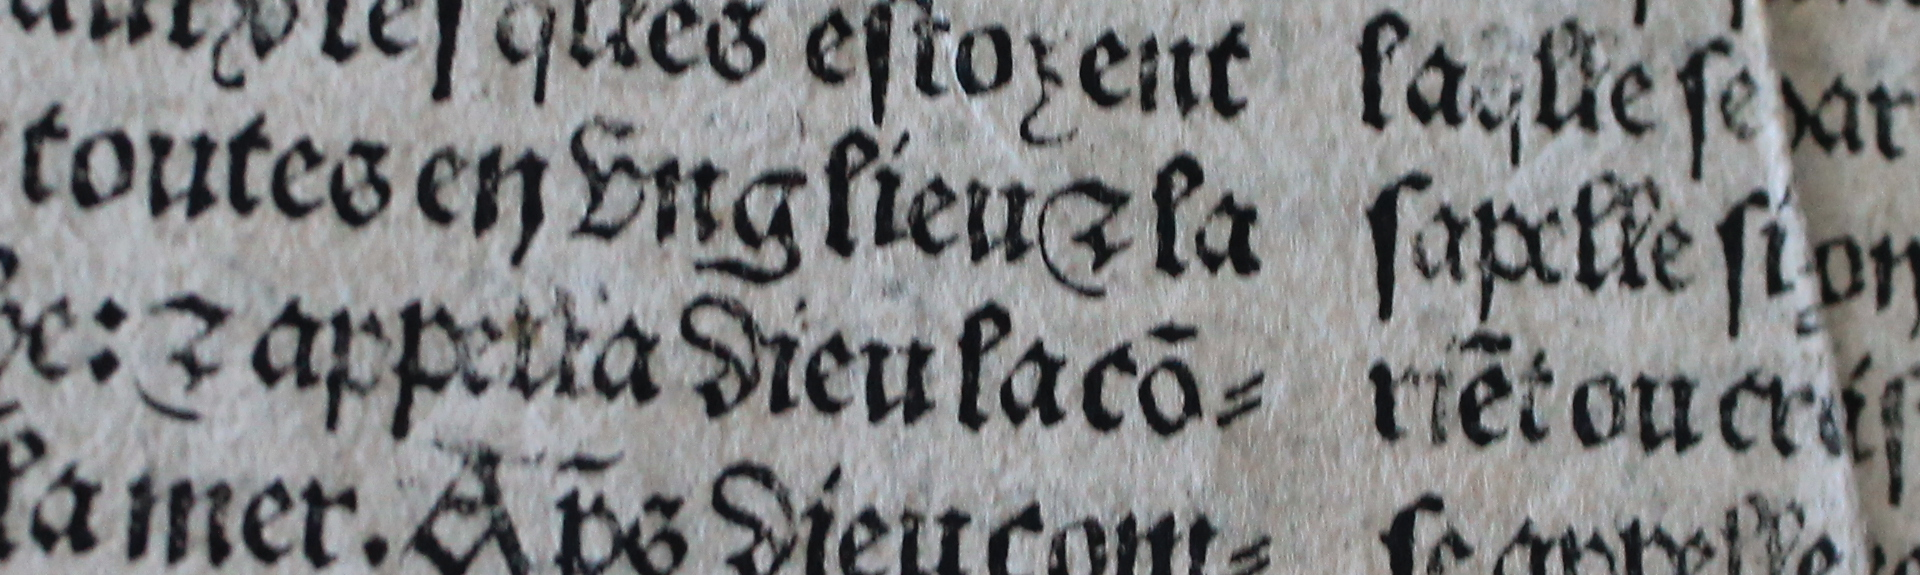 lesqlles estoyent
toutes en vng lieu ⁊ la
⁊ appella dieu la cō⸗
la mer. Apš dieu com⸗
laqlle se
sapelle si on
riēt ou cr
se appelle